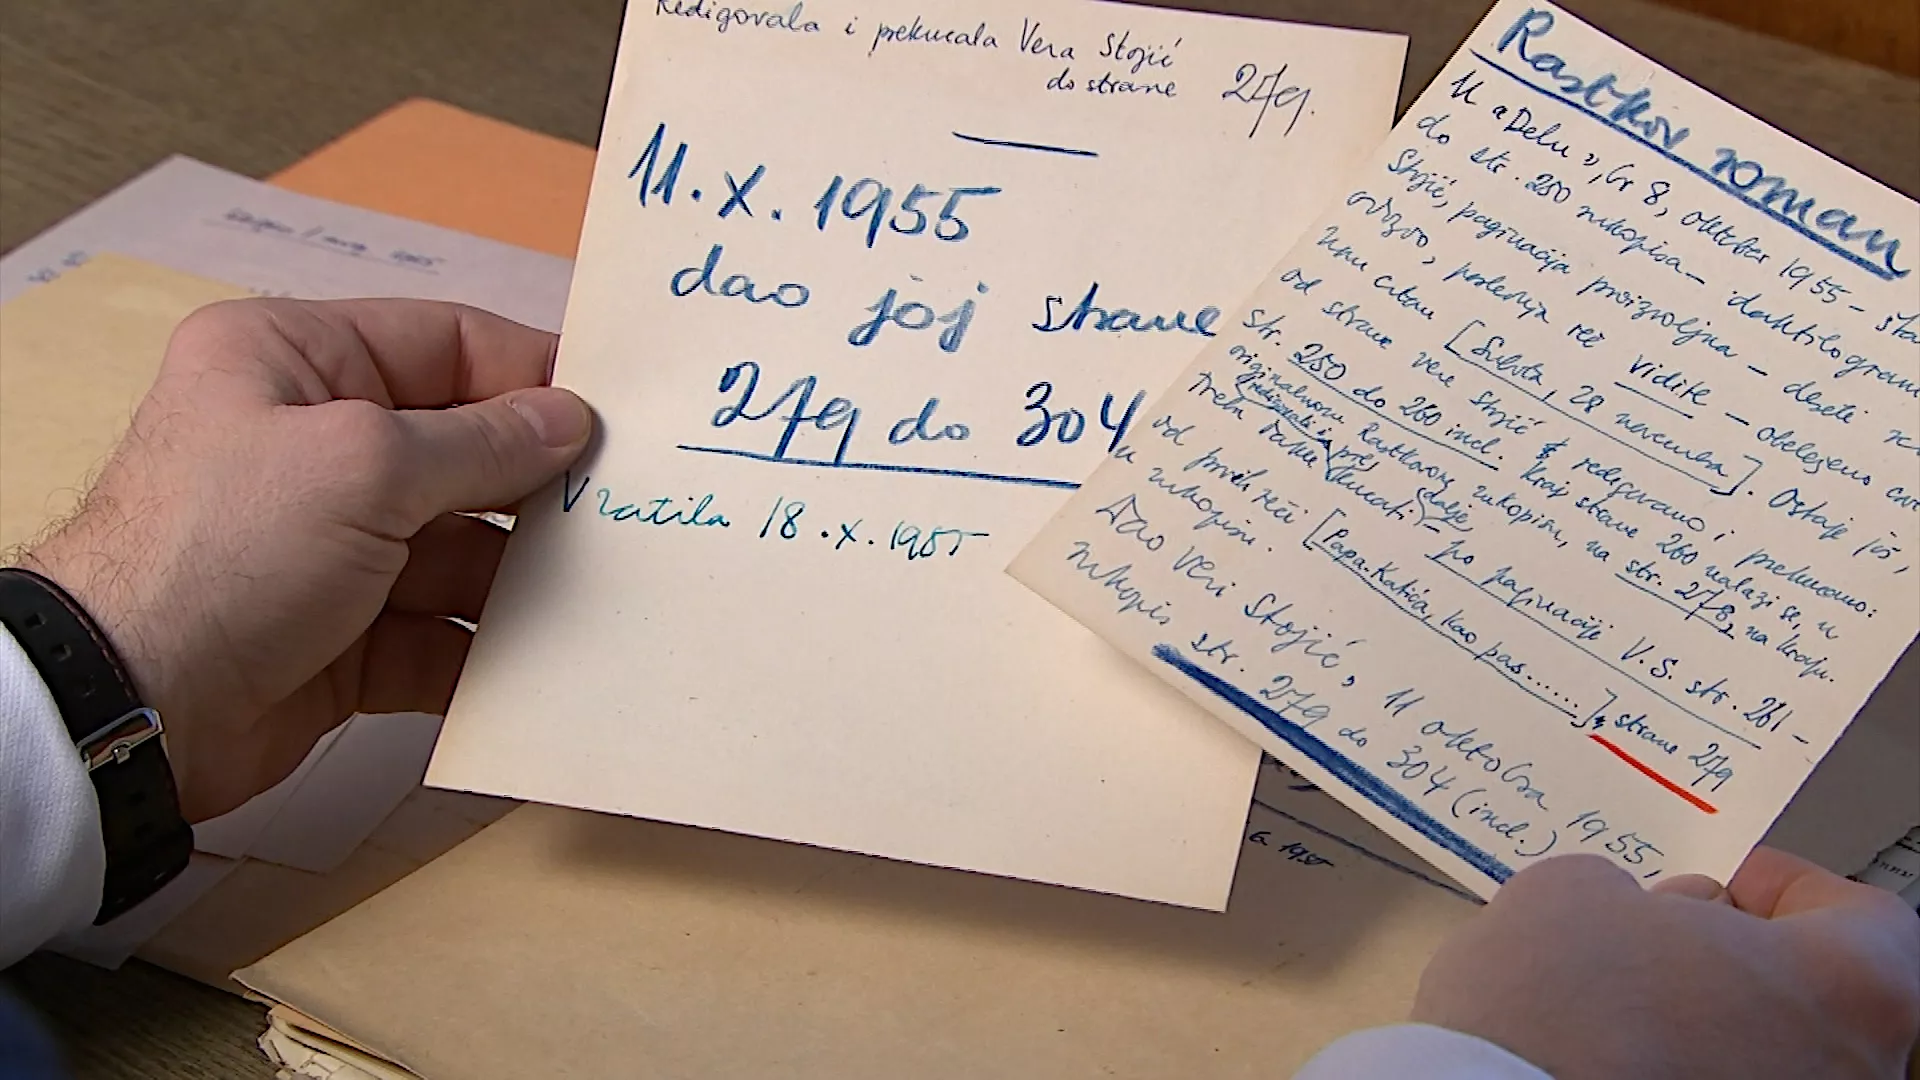 Redigovala i prekucala Vera Stojić
do strane 279.
11. X. 1955
dao joj strane
279 do 304
Vratila 18. X. 1955
Rastkov roman
U "Delu", br 8, oktobar 1955 –
do str. 250 rukopisa – daktilogram
Stojić, paginacija proizvoljna – deseti
odozdo, poslednja reč vidite – obeleženo
[Subota, 28 novembra]. Ostaje još,
od strane Vere Stojić redigovano i prekucano:
str. 250 do 260 incl. Kraj strane 260 nalazi se, u
originalnom Rastkovom rukopisu, na str. 278, na kraju.
Treba dakle redigovati i prekucati dalje, – po paginaciji V. S. str. 261 –
od prvih reči [Papa-Katića, kao pas......], strane 279
rukopisa.
Dao Veri Stojić, 11 oktobra 1955,
rukopis str. 279 do 304 (incl.)
6. 1955